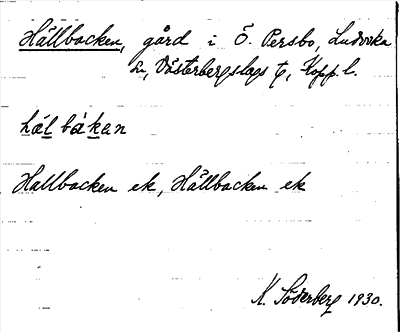 Hällbacken, gård i Ö. Persbo, Ludvika
sn, Västerbergslags tg, Kopp. l.
hälbákan
Hallbacken ek, Hällbacken ek
K. Söderberg 1930.